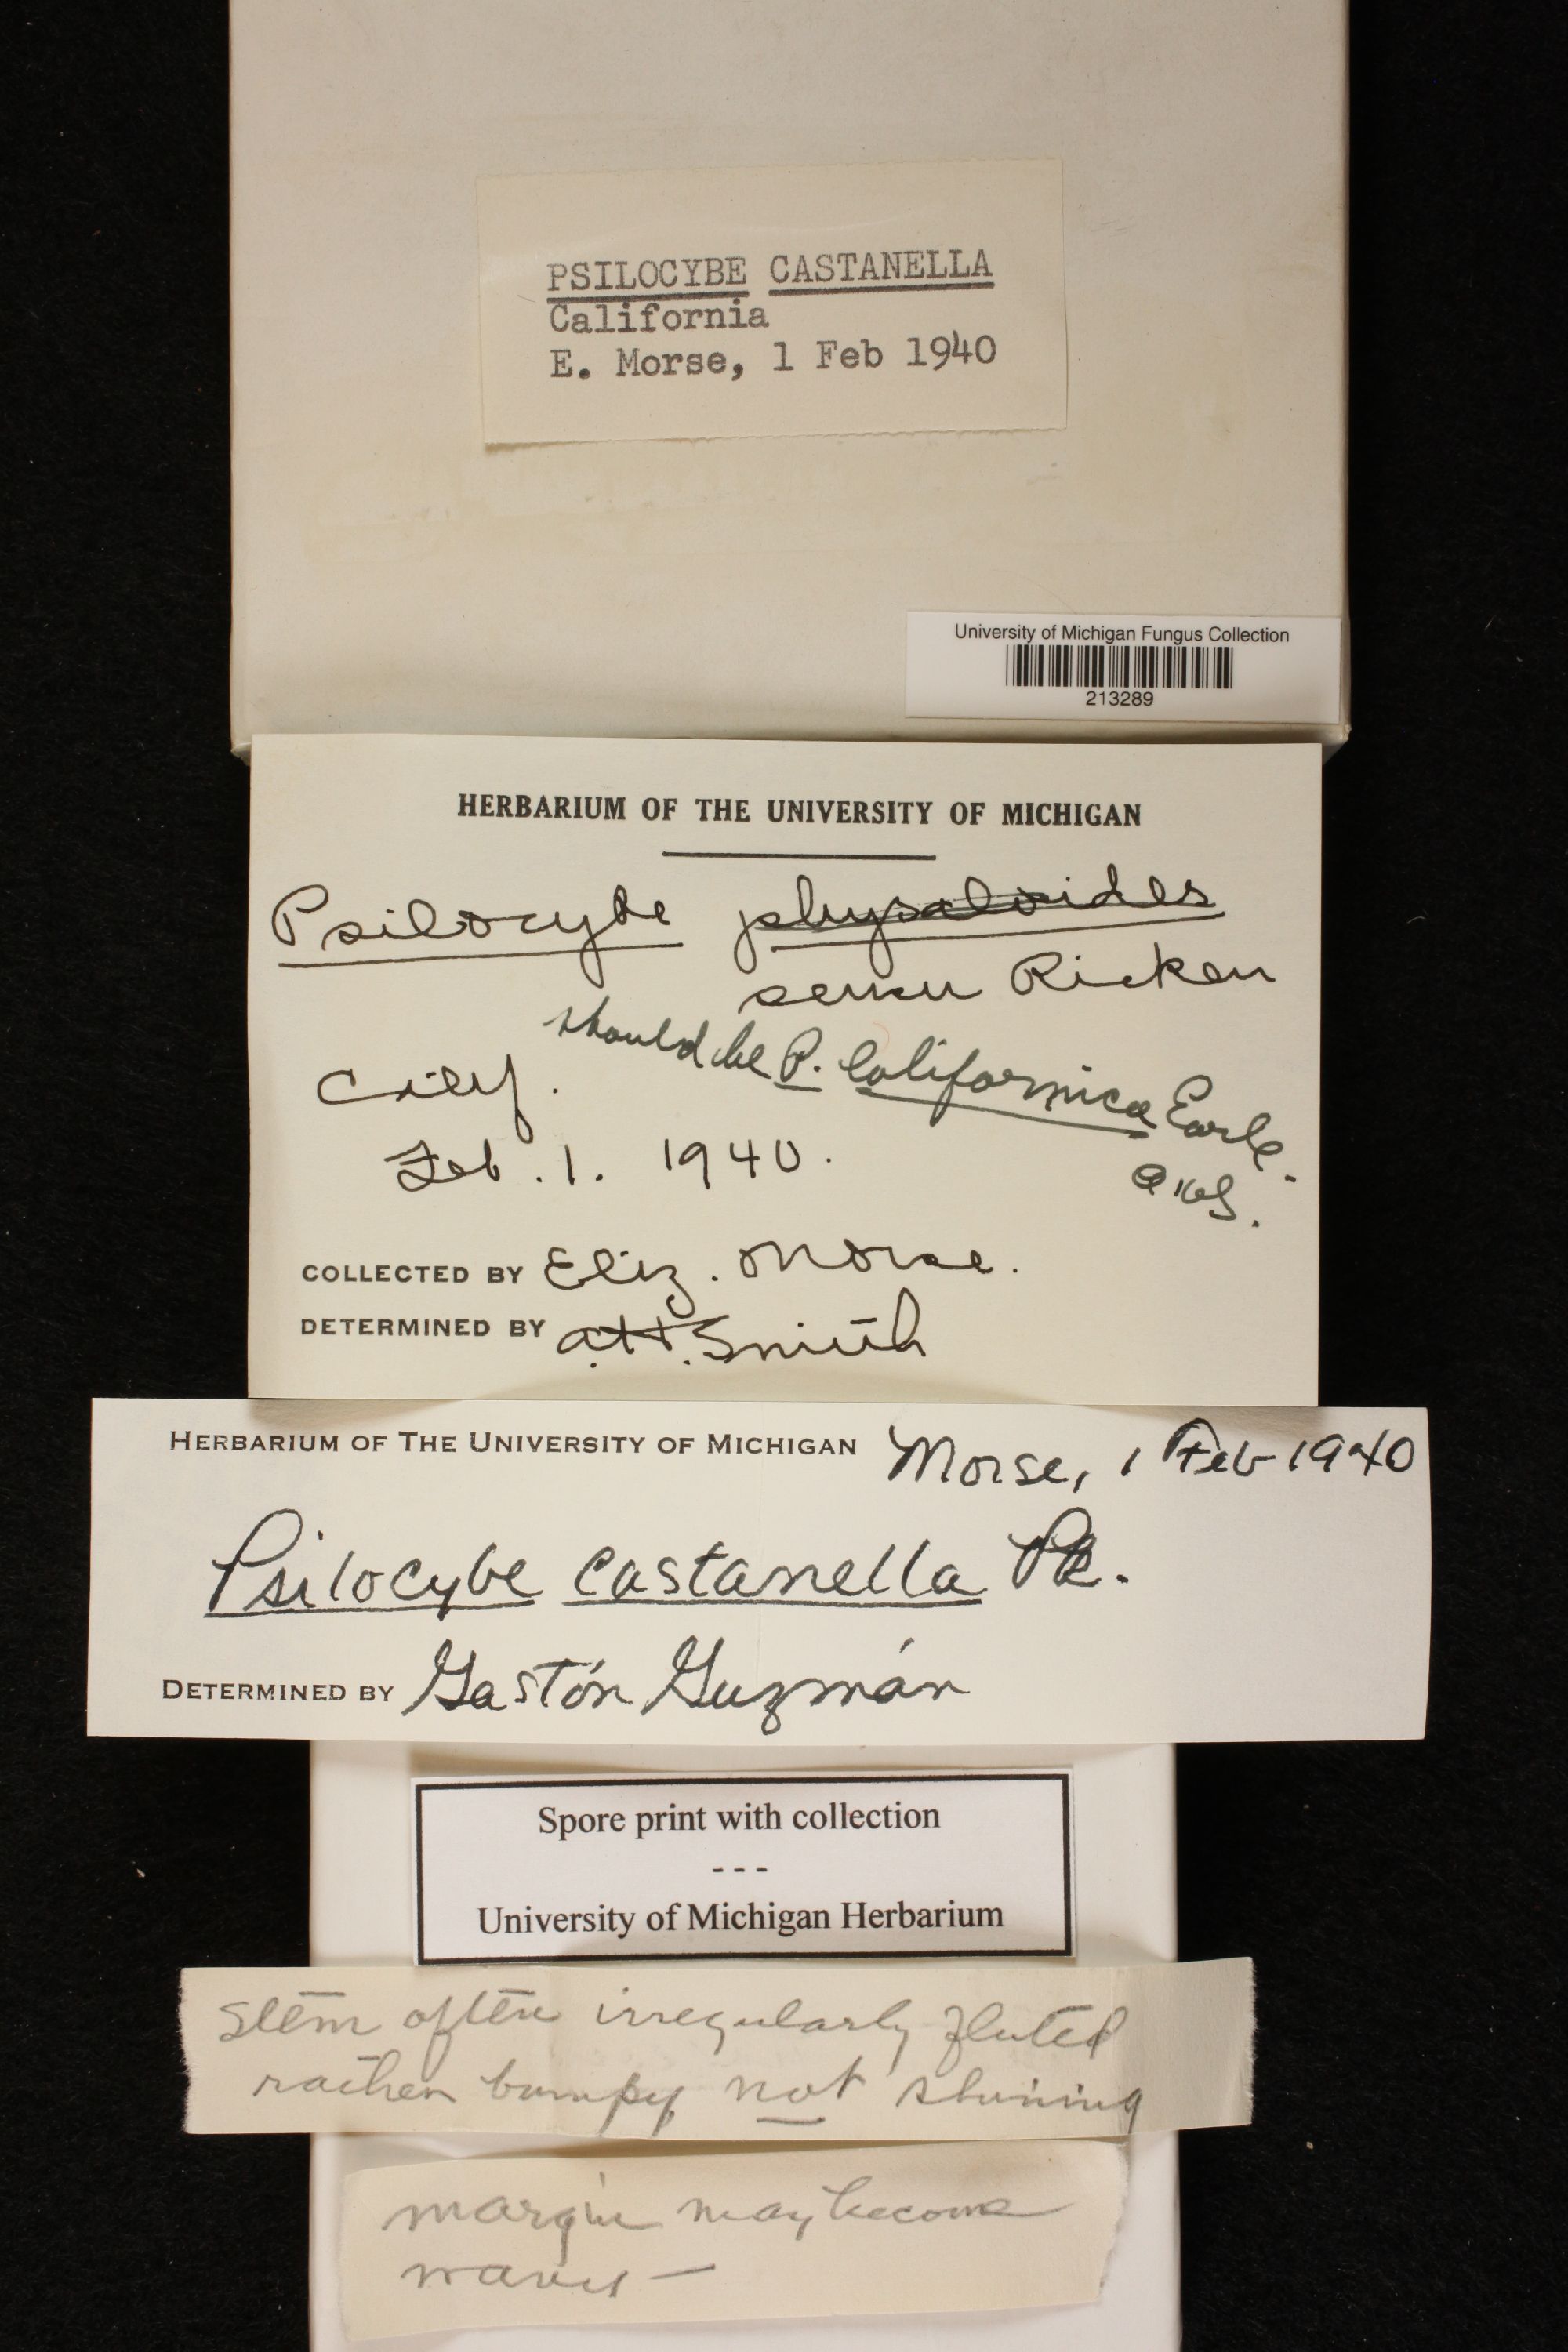 PSILOCYBE CASTANELLA
California
E. Morse, 1 Feb 1940
University of Michigan Fungus Collection
213289
HERBARIUM OF THE UNIVERSITY OF MICHIGAN
Psilocybe physaloides
sensu Ricken
should be P. Californica Earle.
Calif.
Feb. 1. 1940.
COLLECTED BY Eliz. Morse.
DETERMINED BY A.H. Smith
HERBARIUM OF THE UNIVERSITY OF MICHIGAN Morse, 1 Feb 1940
Psilocybe castanella Pk.
DETERMINED BY Gastón Guzmán
Spore print with collection
---
University of Michigan Herbarium
stem often irregularly fluted
rather bumpy not shining
margin may become
wavy —